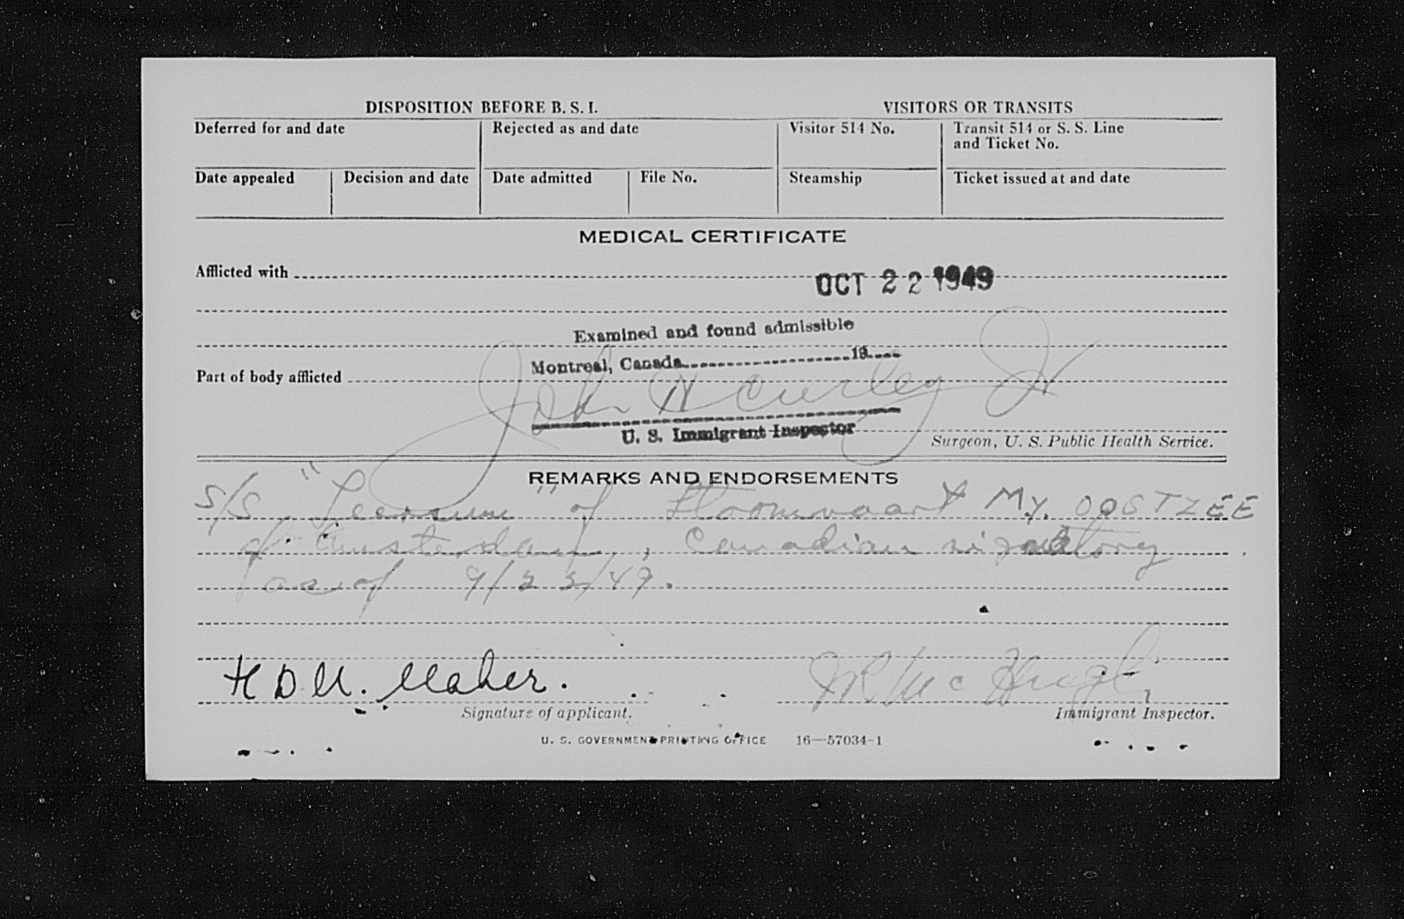 DISPOSITION BEFORE B. S. I.
VISITORS OR TRANSITS
Deferred for and date
Rejected as and date
Visitor 514 No.
Transit 514 or S. S. Line
and Ticket No.
Date appealed
Decision and date
Date admitted
File No.
Steamship
Ticket issued at and date
MEDICAL CERTIFICATE
Afflicted with
OCT 22 1949
Examined and found admissible
Montreal, Canada 19
Part of body afflicted
John W Curley Jr
U. S. Immigrant Inspector
Surgeon, U. S. Public Health Service.
REMARKS AND ENDORSEMENTS
S/S "Leersum" of Stoomvaart My. OOSTZEE
of Amsterdam, Canadian signatory
as of 9/23/49.
H D M. Maher.
J R McHugh
Signature of applicant.
Immigrant Inspector.
U. S. GOVERNMENT PRINTING OFFICE 16—57034-1